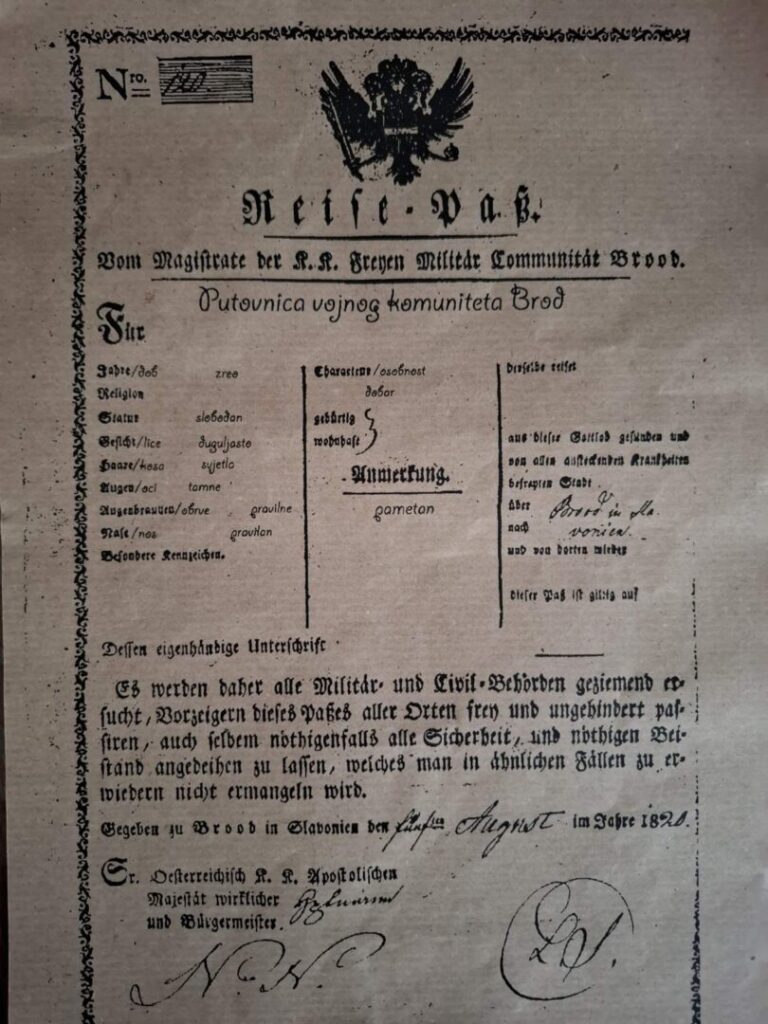 Nro. 120.
Reise-Paß.
Vom Magistrate der K.K. Freyen Militär Communität Brood.
Putovnica vojnog komuniteta Brod
Für
Jahre/dob zreo
Religion
Statur slobodan
Gesicht/lice duguljasto
Haare/kosa svjetla
Augen/oci tamne
Augenbraunen/obrve pravilne
Nase/nos pravilan
Besondere Kennzeichen.
Characteur/osobnost
dobar
gebürtig
wohnhaft
Anmerkung.
pametan
derselbe reiset
aus dieser Gottlob gesunden und
von allen ansteckenden Krankheiten
befreyten Stadt
über Brood in Sla
nach vonien.
und von dorten wieder
dieser Paß ist giltig auf
Dessen eigenhändige Unterschrift
Es werden daher alle Militär- und Civil-Behörden geziemend er-
sucht, Vorzeigern dieses Paßes aller Orten frey und ungehindert pas-
siren, auch selbem nöthigenfalls alle Sicherheit, und nöthigen Bei-
stand angedeihen zu lassen, welches man in ähnlichen Fällen zu er-
wiedern nicht ermangeln wird.
Gegeben zu Brood in Slavonien den fünften August im Jahre 1820.
Sr. Oesterreichisch K. K. Apostolischen
Majestät wirklicher
und Bürgermeister.
N. N.
L.S.